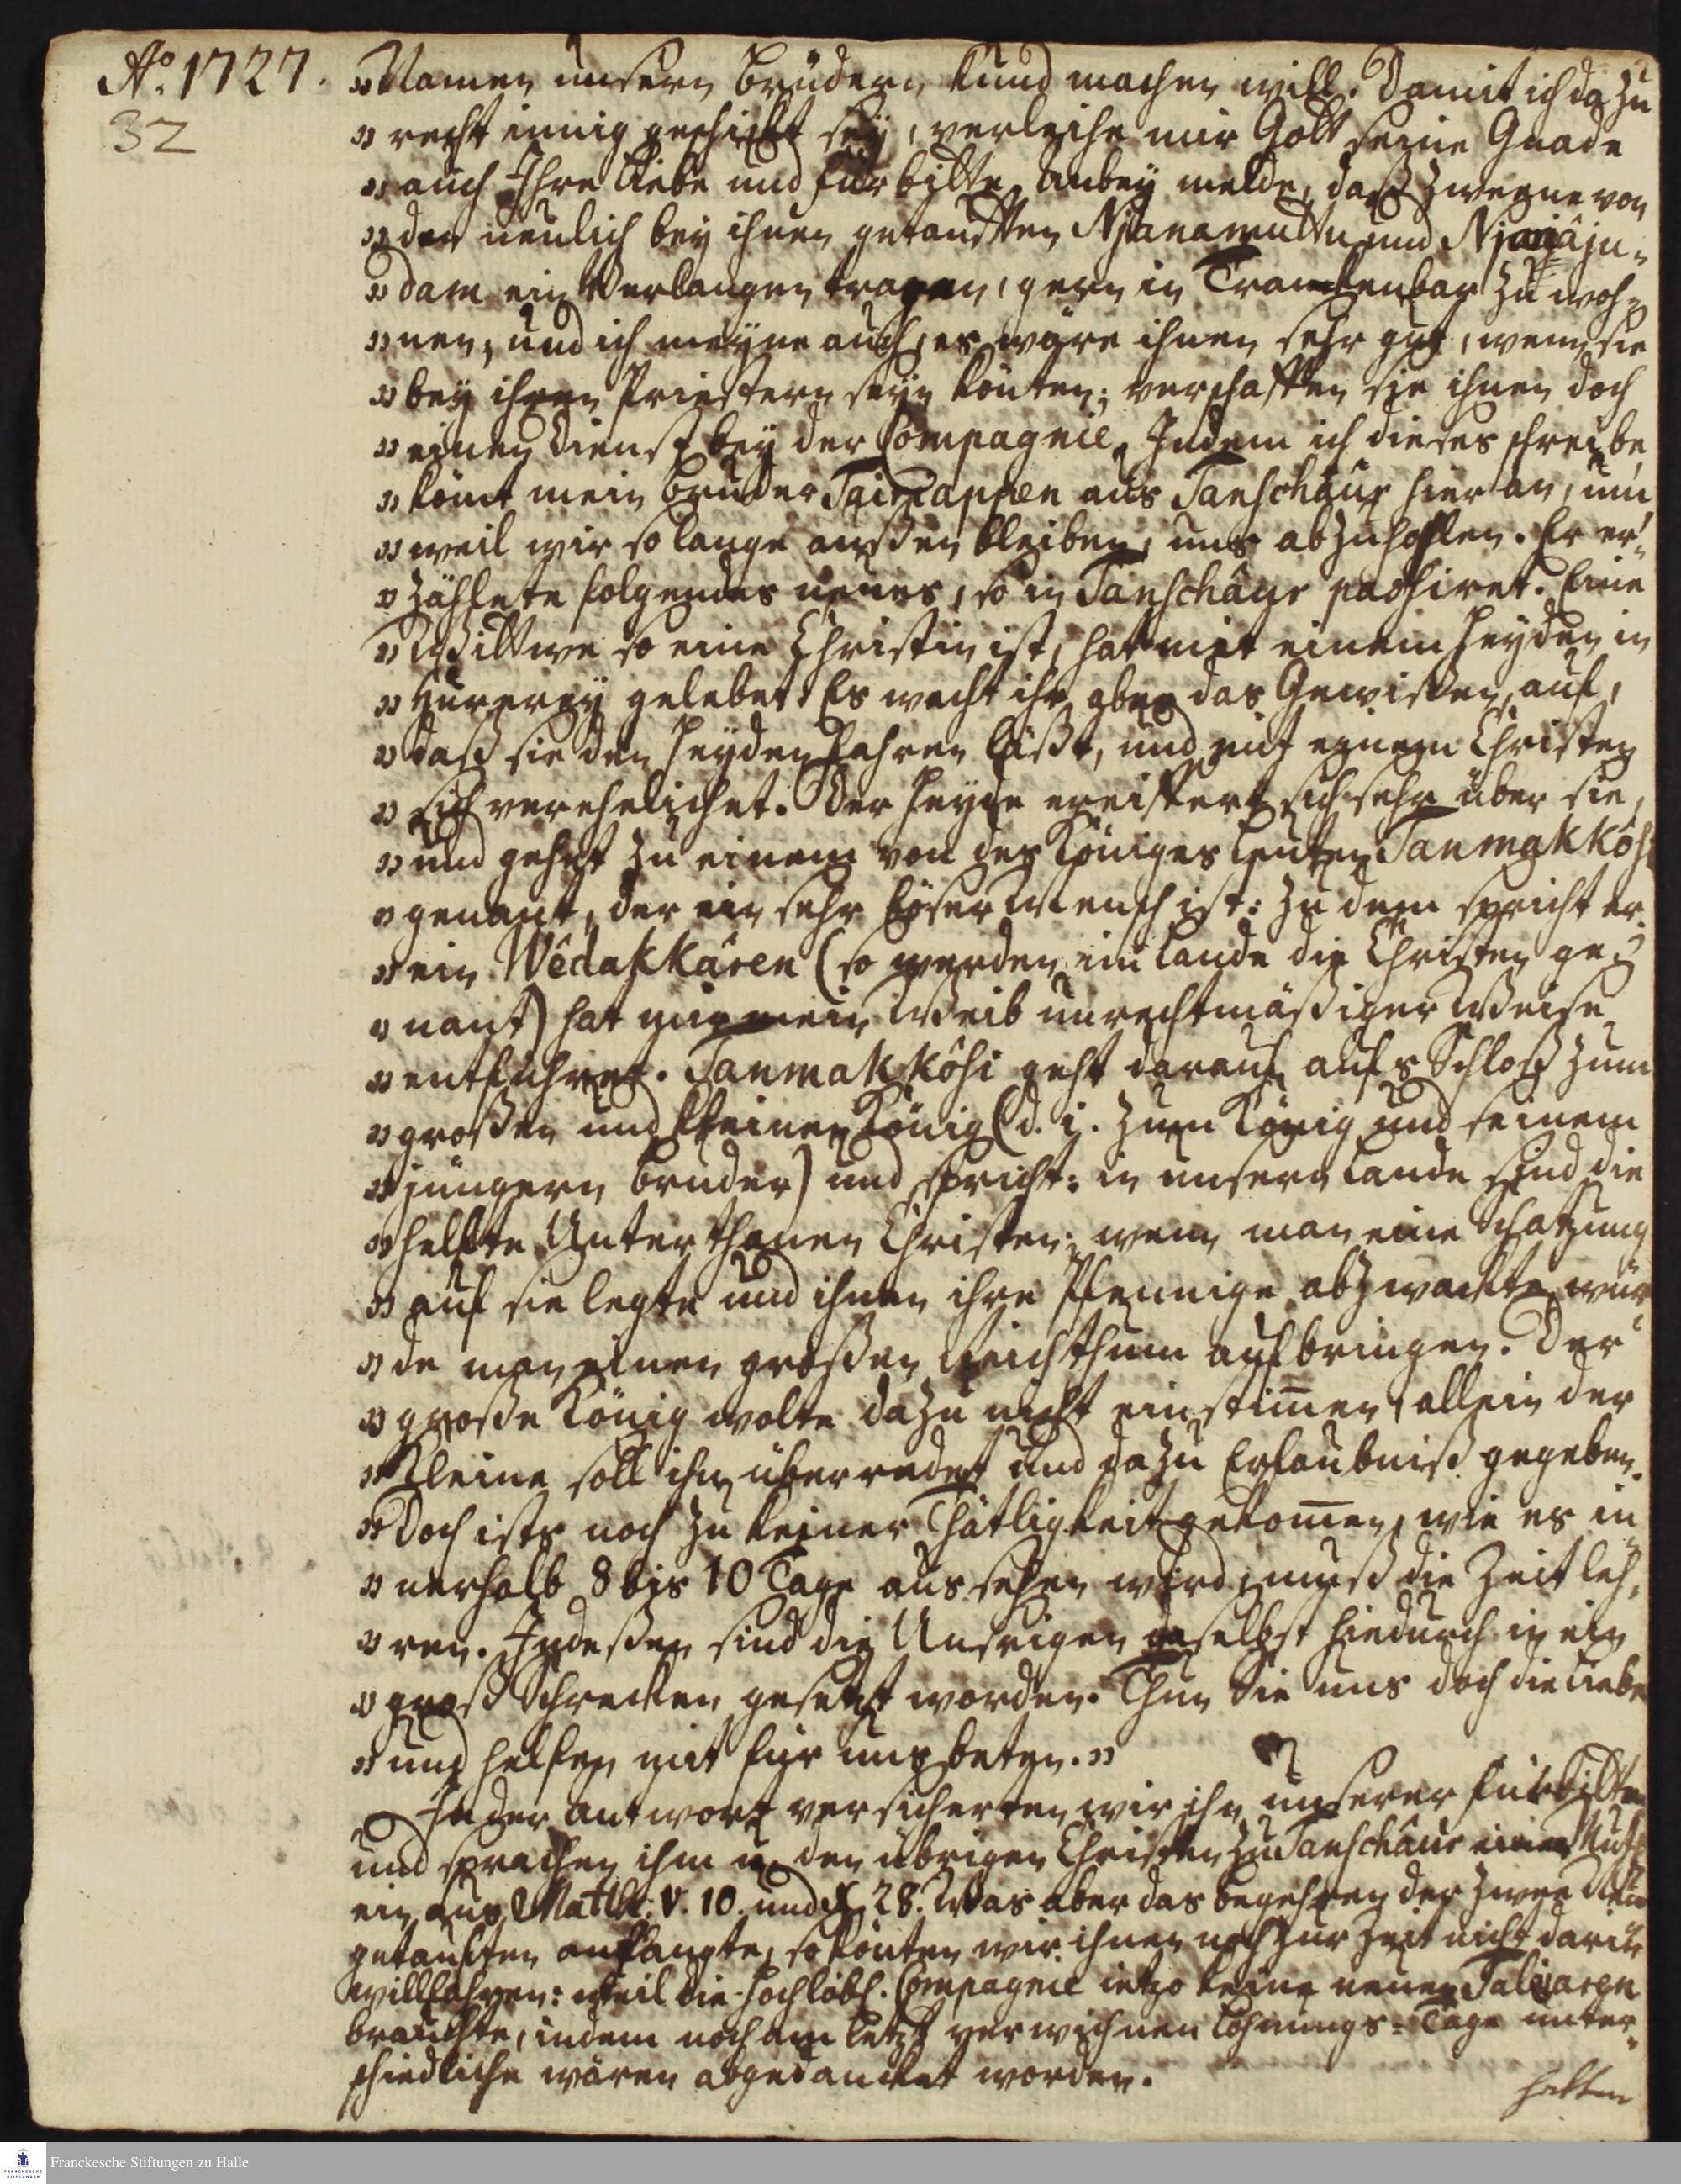 Aº. 1727.
32
„Namen unsern Brüdern kund machen will. Damit ich dazu
„recht innig geschickt sey, verleihe mir Gott seine Gnade
„auch Ihre Liebe und Fürbitte. Anbey melde, daß zweene von
„den neulich bey ihnen getaufften Njânamuttu und Njanâju-
„dam ein Verlangen tragen, gern in Tranckenbar zu woh-
„nen, und ich meyne auch, es wäre ihnen sehr gut, wenn sie
„bey ihren Priestern seyn könten; verschaffen sie ihnen doch
„einen Dienst bey der Compagnie. Indem ich dieses schreibe,
„kömt mein Bruder Tairiappen aus Tanschâur hier an, um,
„weil wir so lange aussen bleiben, uns abzuhohlen. Er er-
„zählete folgendes neues, so in Tanschâur passiret. Eine
„Wittwe so eine Christin ist, hat mit einem Heyden in
„Hurerey gelebet. Es wacht ihr aber das Gewissen auf,
„daß sie den Heyden fahren läßt, und mit einem Christen
„sich verehelichet. Der Heyde ereiffert sich sehr über sie,
„und gehet zu einem von des Königes Leuten Tanmakkôsi
„genant, der ein sehr böser Mensch ist: zu dem spricht er:
„ein Wêdakkâren (so werden im Lande die Christen ge-
„nant) hat mir mein Weib unrechtmäßiger Weise
„entführet. Tanmakkôsi geht darauf aufs Schloß zum
„großen und kleinen König (d. i. zum König und seinem
„jüngern Bruder) und spricht: in unsern Lande sind die
„helffte Unterthanen Christen; wenn man eine Schatzung
„auf sie legte und ihnen ihre Pfennige abzwackte, wür-
„de man einen großen Reichthum aufbringen. Der
„große König wolte dazu nicht einstim̄en, allein der
„Kleine soll ihn überredet und dazu Erlaubniß gegeben.
„Doch ists noch zu keiner Thätligkeit gekom̄en, wie es in-
„nerhalb 8 bis 10 Tage aussehen wird, muß die Zeit leh-
„ren. Indeßen sind die Unsrigen daselbst hiedurch in ein
„groß Schrecken gesetzt worden. Thun Sie uns doch die Liebe
„und helfen mit für uns beten.„
In der Antwort versicherten wir ihn unserer Fürbitte
und sprachen ihm u. den übrigen Christen zu Tanschâur einen Muth
ein aus Matth. V. 10. und X, 28. Was aber das Begehren der zwee Neu
getauften anlangte, so könten wir ihnen noch zur Zeit nicht darin
willfahren: weil die Hochlöbl. Compagnie ietzo keine neuen Taliaren
brauchte, indem noch am letzt verwichnen Lohnungs-Tage unter-
schiedliche wären abgedancket worden.
hatten
Franckesche Stiftungen zu Halle